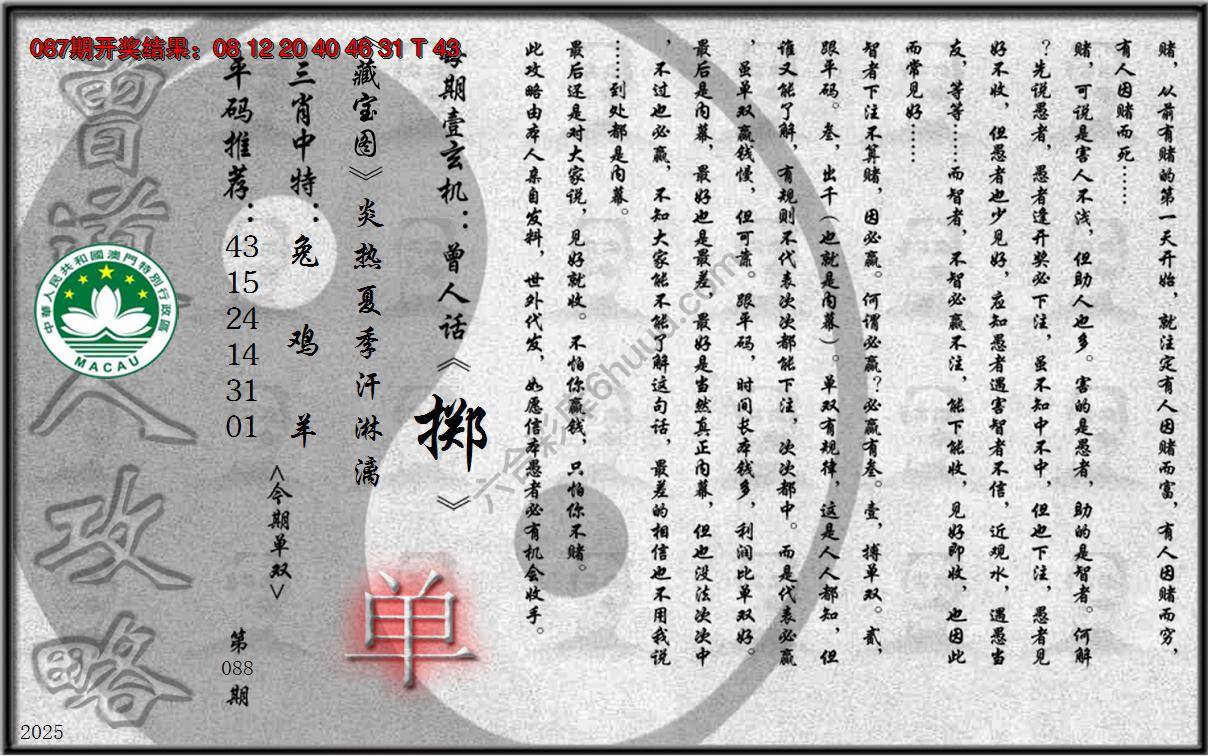 087期开奖结果：08 12 20 40 46 31 T 43
赌，从前有赌的第一天开始，就注定有人因赌而富，有人因赌而穷，
有人因赌而死……
赌，可说是害人不浅，但助人也多。害的是愚者，助的是智者。何解
？先说愚者，愚者逢开奖必下注，虽不知中不中，但也下注，愚者见
好不收，但愚者也少见好，应知愚者遇害智者不信，近观水，遇愚当
友，等等……而智者，不智必赢不注，能下能收，见好即收，也因此
而常见好……
智者下注不算赌，因必赢。何谓必赢？必赢有叁。壹，搏单双。贰，
跟平码。叁，出千（也就是内幕）。单双有规律，这是人人都知，但
谁又能了解，有规则不代表次次都能下注，次次都中。而是代表必赢
，虽单双赢钱慢，但可靠。跟平码，时间长本钱多，利润比单双好。
最后是内幕，最好也是最差，最好是当然真正内幕，但也没法次次中
，不过也必赢，不知大家能不能了解这句话，最差的相信也不用我说
……到处都是内幕。
最后还是对大家说，见好就收。不怕你赢钱，只怕你不赌。
此攻略由本人亲自发料，世外代发，如愿信本愚者必有机会收手。
每期壹玄机：曾人话《掷》
《藏宝图》炎热夏季汗淋漓
单
三肖中特：兔 鸡 羊
<今期单双>
平码推荐：43 15 24 14 31 01
第088期
曾道人攻略
中華人民共和國澳門特別行政區
MACAU
六合彩库6huuu.com
2025